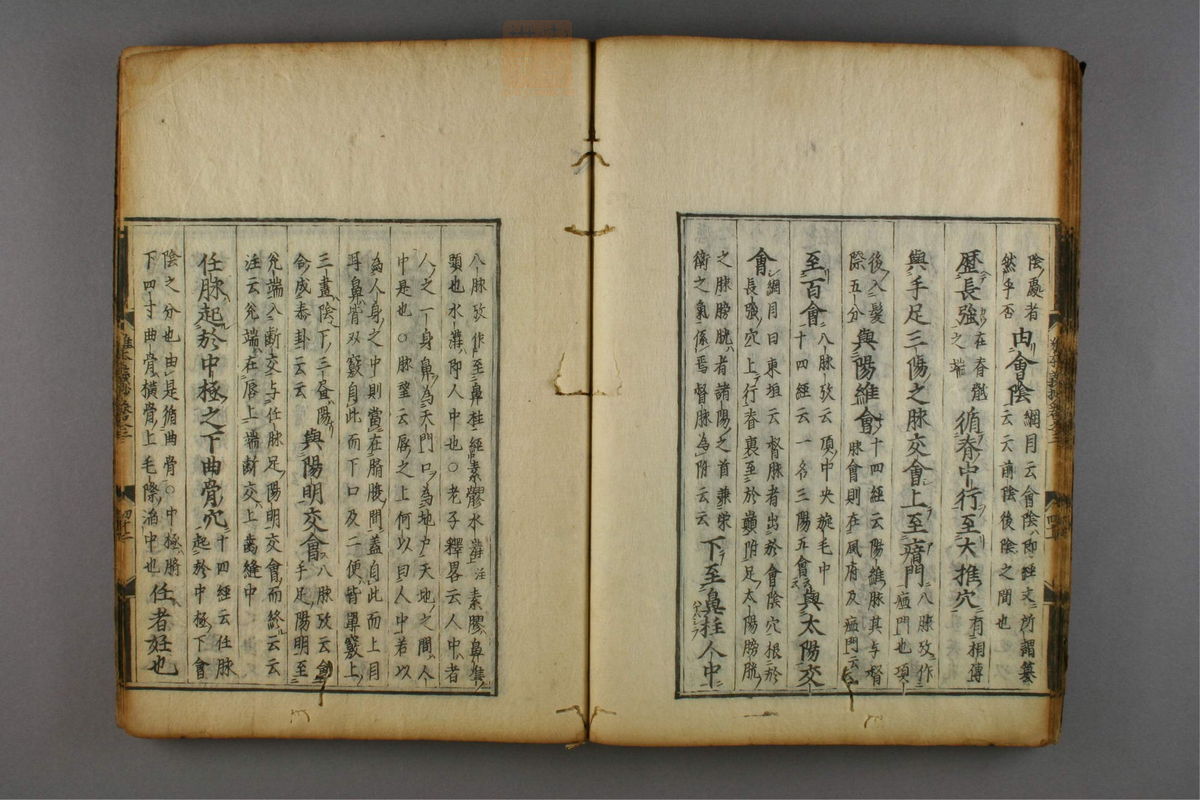 陰處者
然乎否
由會陰
綱目云會陰即經文所謂纂
云天前陰後陰之間也
歷長強
在脊骶
之端
循脊中行至大推穴
有相傳
與手足三陽之脉交會上至瘖門
八脉攷作
瘂門也項
後入髮
際五分
與陽維會
十四經云陽維脉其与督
脉會則在風府及瘂門云
至百會
八脉攷云頂中央旋毛中
十四經云一名三陽五會
與太陽交
會
綱目曰東垣云督脉者出於會陰穴根於
長強穴上行脊裏至於巔附足太陽膀胱
之脉膀胱者諸陽之首兼榮
衛之氣係焉督脉為附云云
下至鼻柱人中
八脉攷作至鼻柱經素髎水溝注素髎鼻準
頭也水溝即人中也○老子釋畧云人中者
人之一身鼻為天門口為地户天地之間人
中是也○脉望云唇之上何以曰人中若以
為人身之中則當在臍腹間蓋自此而上目
耳鼻皆双竅自此而下口及二便皆單竅上
三畫陰下三畫陽
合成泰卦云云
與陽明交會
八脉攷云會
手足陽明至
兊端入齗交与任脉足陽明交會而終云云
注云兊端在唇上端齗交上齒縫中
任脉起於中極之下曲骨穴
十四經云任脉
起於中極下會
陰之分也由是循曲骨○中極臍
下四寸曲骨橫骨上毛際滔中也
任者妊也